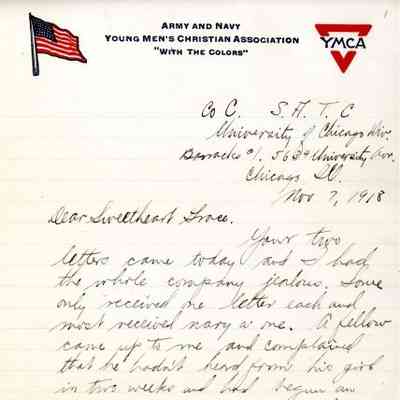 ARMY AND NAVY
YOUNG MEN'S CHRISTIAN ASSOCIATION
"WITH THE COLORS"
YMCA
Co C. S. A. T. C
University of Chicago Div.
Barracks #1. 5639 University Ave.
Chicago Ill.
Nov 7, 1918
Dear Sweetheart Grace.
Your two
letters came today and I had
the whole company jealous. Some
only received one letter each and
most received nary a one. A fellow
came up to me and complained
that he hadn't heard from his girl
in two weeks and had begun an